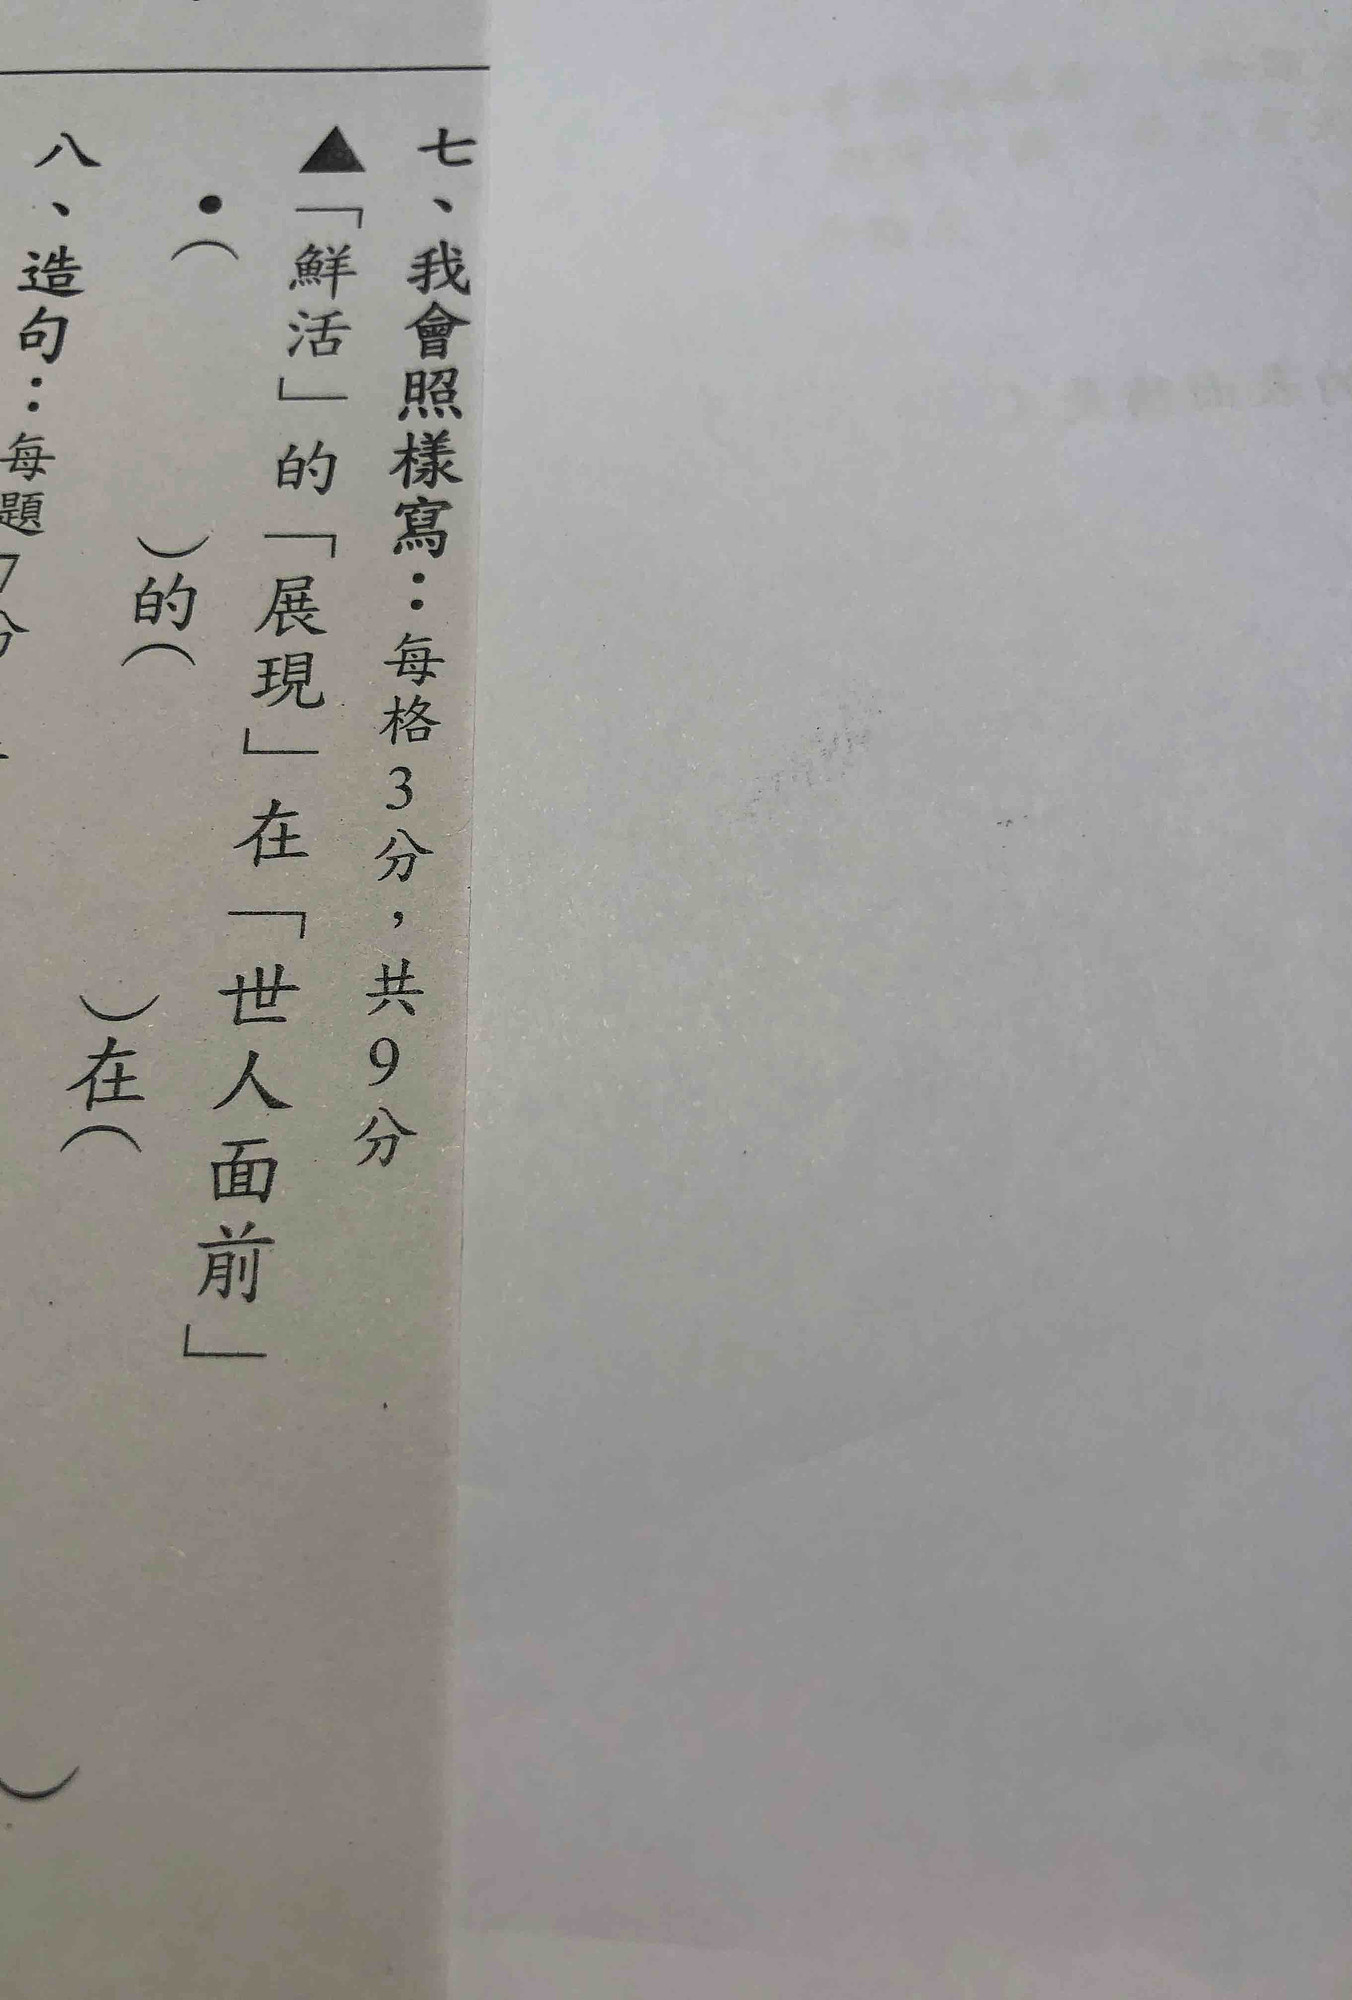 七、我會照樣寫：每格3分，共9分
▲「鮮活」的「展現」在「世人面前」
•（　　）的（　　）在（　　）
八、造句：每題7分